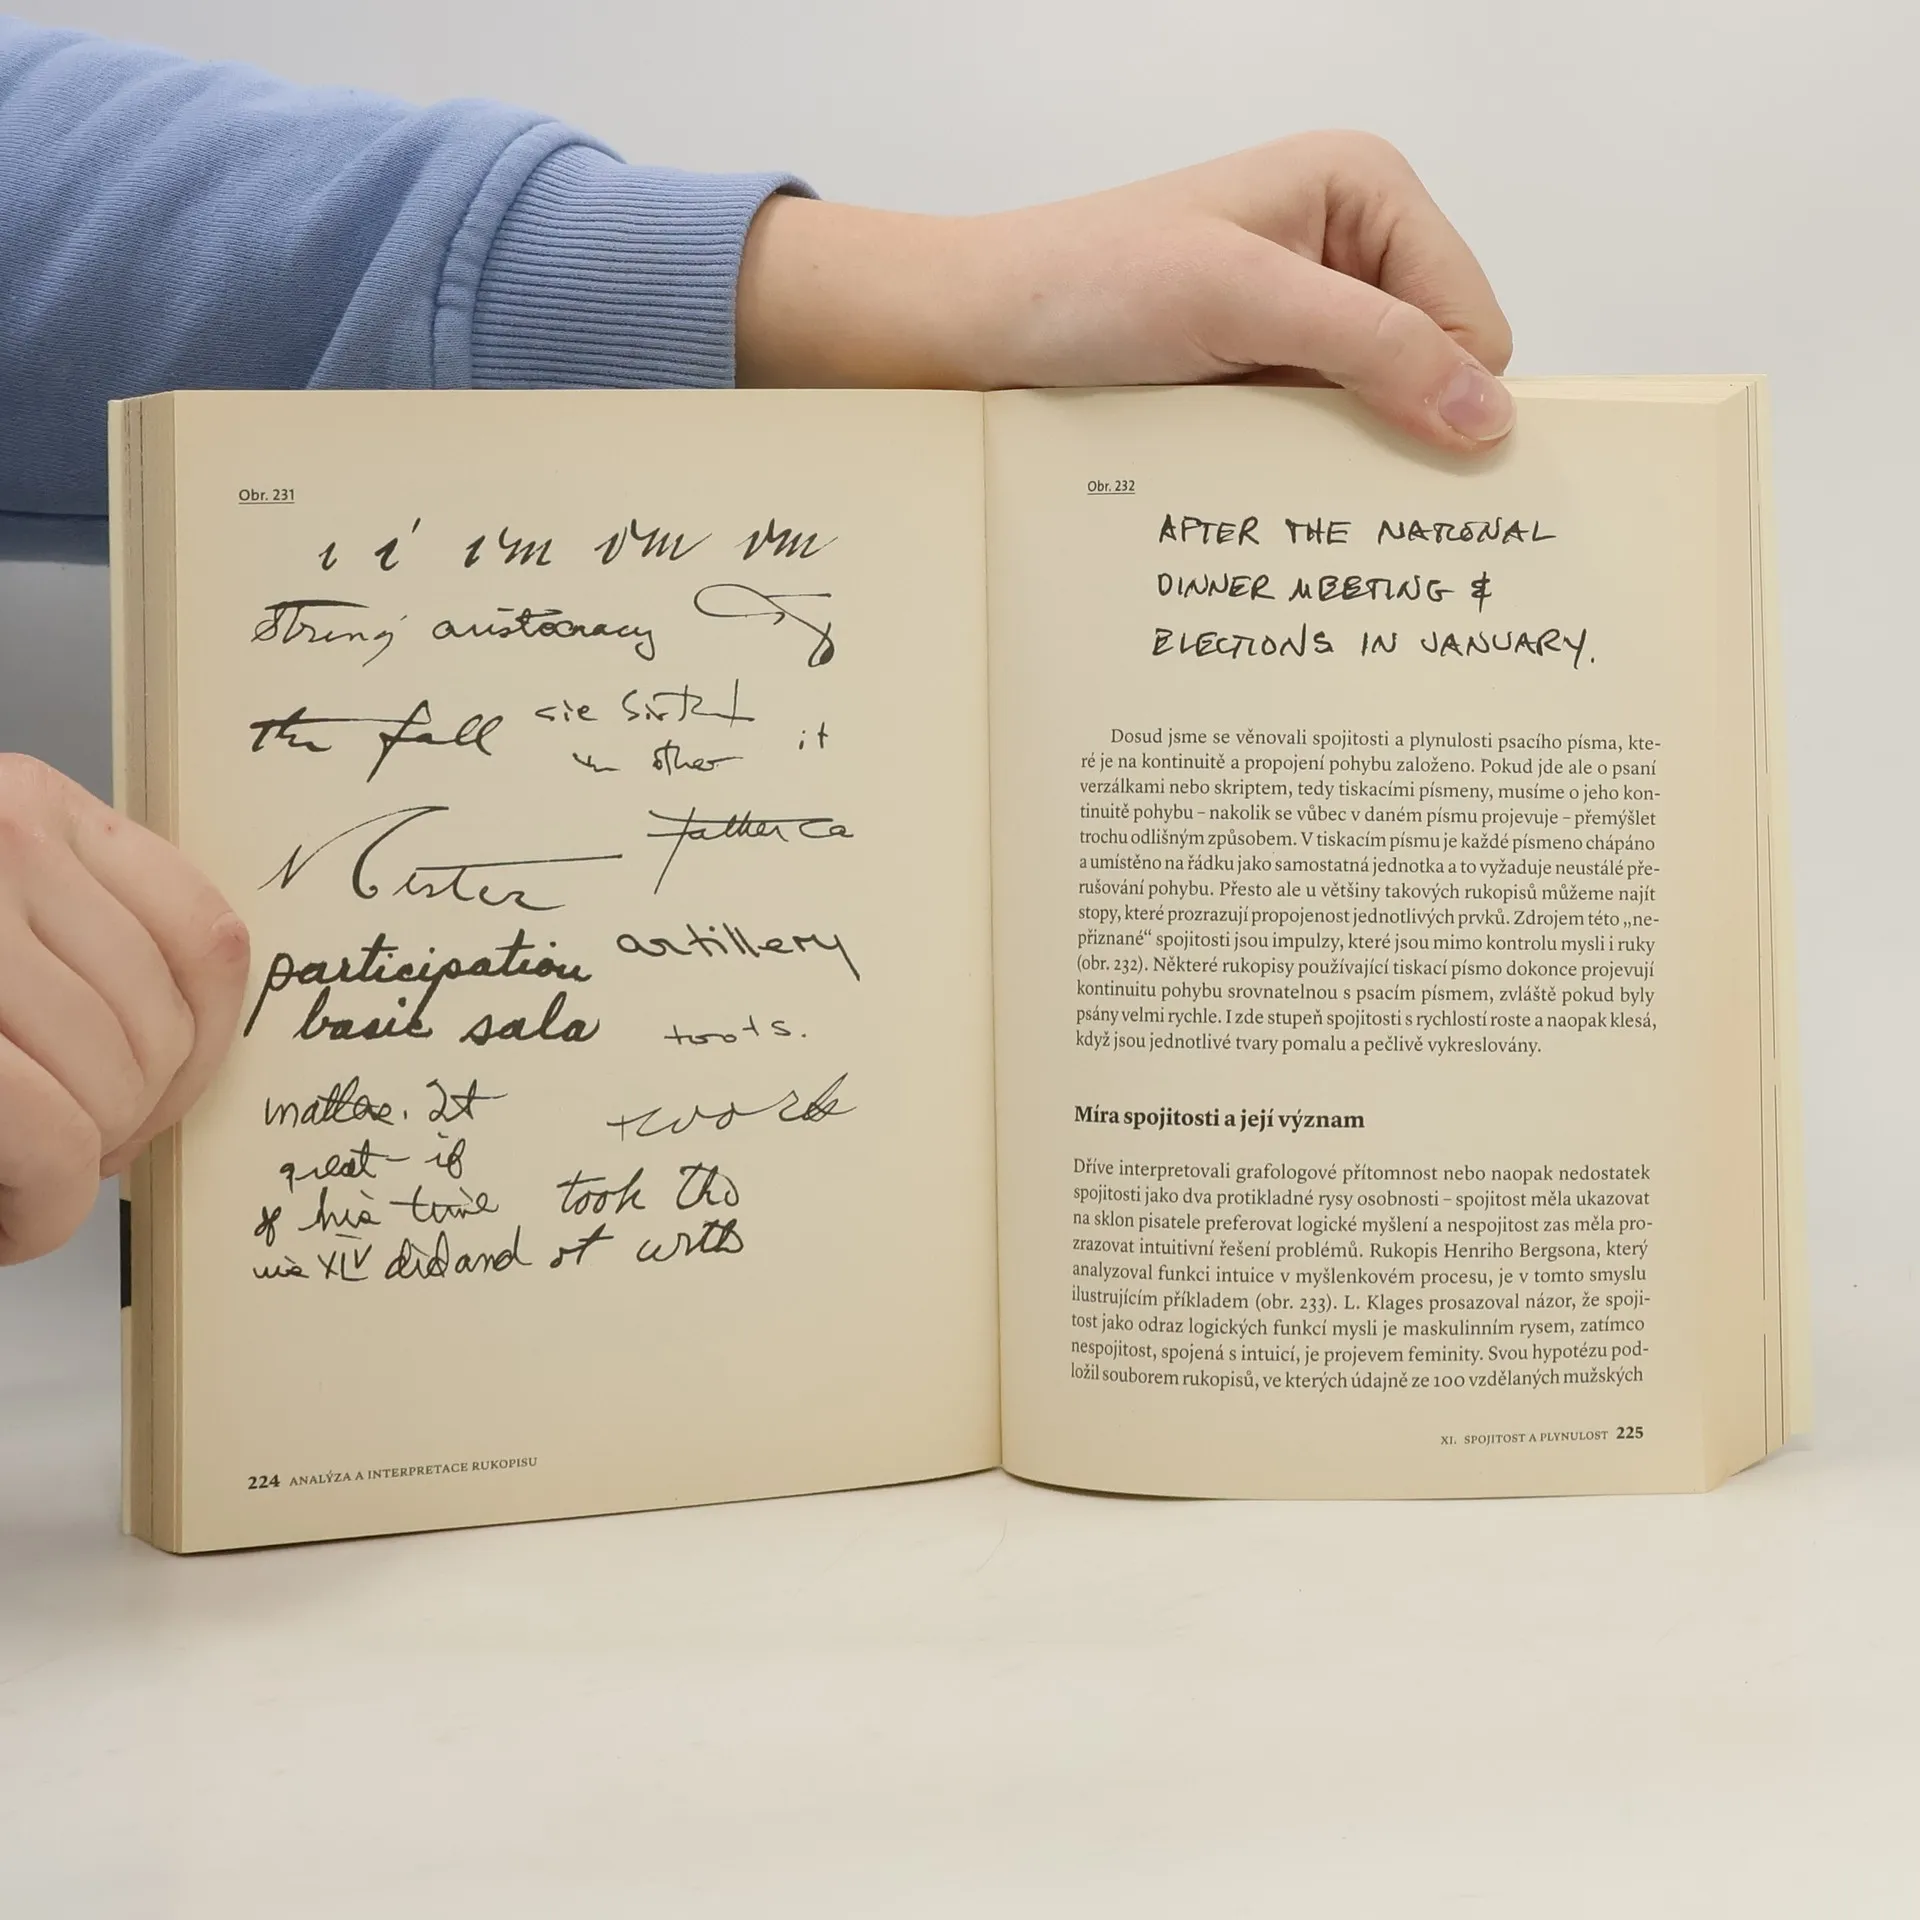 Obr. 231
ı i' i'm i'm i'm
String aristocracy
the fall sie
in other it
father ca
participation artillery
basic sala tools.
matter. It
great if work
of his time took the
XIV did and of with
224 ANALÝZA A INTERPRETACE RUKOPISU
Obr. 232
AFTER THE NATIONAL
DINNER MEETING &
ELECTIONS IN JANUARY.
Dosud jsme se věnovali spojitosti a plynulosti psacího písma, kte-
ré je na kontinuitě a propojení pohybu založeno. Pokud jde ale o psaní
verzálkami nebo skriptem, tedy tiskacími písmeny, musíme o jeho kon-
tinuitě pohybu – nakolik se vůbec v daném písmu projevuje – přemýšlet
trochu odlišným způsobem. V tiskacím písmu je každé písmeno chápáno
a umístěno na řádku jako samostatná jednotka a to vyžaduje neustálé pře-
rušování pohybu. Přesto ale u většiny takových rukopisů můžeme najít
stopy, které prozrazují propojenost jednotlivých prvků. Zdrojem této „ne-
přiznané“ spojitosti jsou impulzy, které jsou mimo kontrolu mysli i ruky
(obr. 232). Některé rukopisy používající tiskací písmo dokonce projevují
kontinuitu pohybu srovnatelnou s psacím písmem, zvláště pokud byly
psány velmi rychle. I zde stupeň spojitosti s rychlostí roste a naopak klesá,
když jsou jednotlivé tvary pomalu a pečlivě vykreslovány.
Míra spojitosti a její význam
Dříve interpretovali grafologové přítomnost nebo naopak nedostatek
spojitosti jako dva protikladné rysy osobnosti – spojitost měla ukazovat
na sklon pisatele preferovat logické myšlení a nespojitost zas měla pro-
zrazovat intuitivní řešení problémů. Rukopis Henriho Bergsona, který
analyzoval funkci intuice v myšlenkovém procesu, je v tomto smyslu
ilustrujícím příkladem (obr. 233). L. Klages prosazoval názor, že spoji-
tost jako odraz logických funkcí mysli je maskulinním rysem, zatímco
nespojitost, spojená s intuicí, je projevem feminity. Svou hypotézu pod-
ložil souborem rukopisů, ve kterých údajně ze 100 vzdělaných mužských
XI. SPOJITOST A PLYNULOST 225